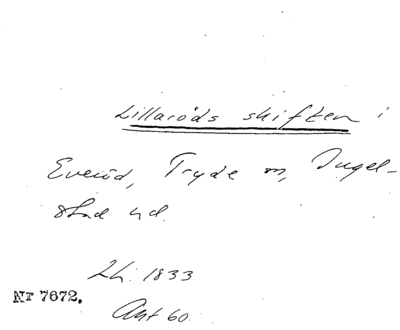 Lillaröds skiften i
Everöd, Tryde sn, Ingel-
stad hd.
Lh. 1833
Akt 60.
Nr 7672.